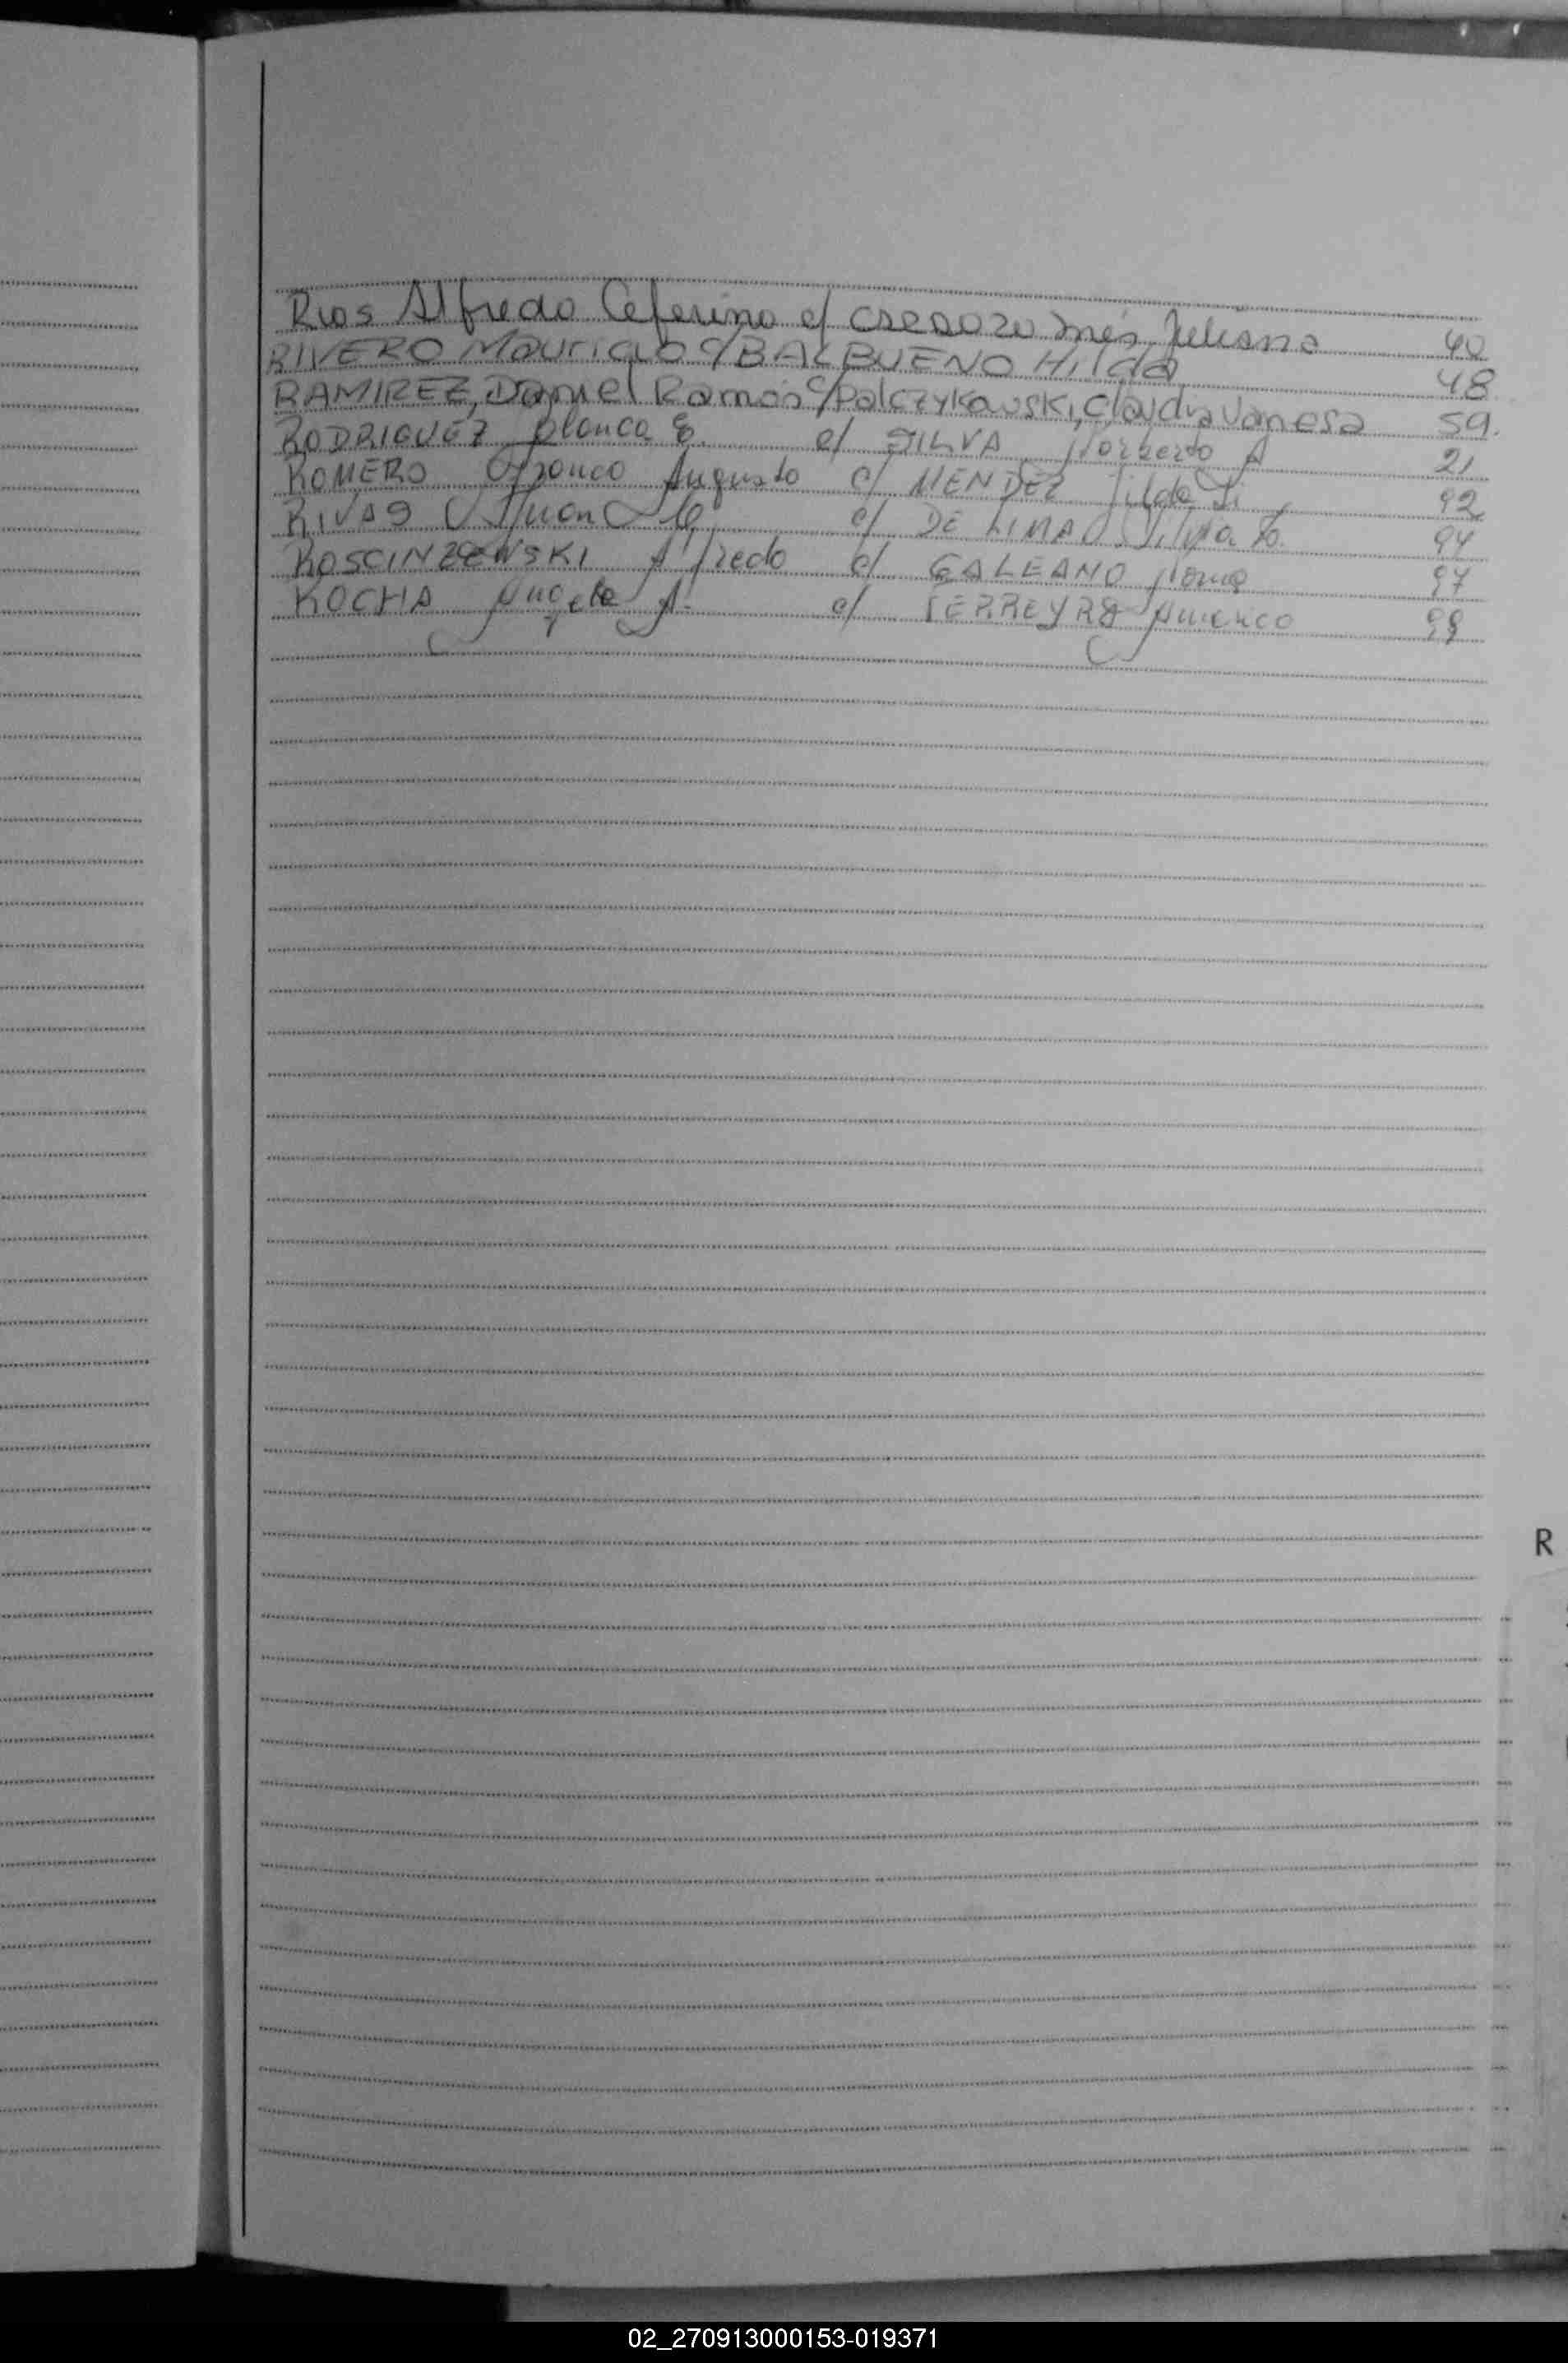 Rios Alfredo Ceferino c/ Cardozo Inés Juliana 40
RIVERO Mauricio c/ BALBUENO Hilda 48
RAMIREZ, Daniel Ramón c/ Palczykowski, Claudia Vanesa 59.
RODRIGUEZ Blanca E. c/ SILVA Norberto A 21
ROMERO Franco Augusto c/ MENDEZ Gilda 92
RIVAS Juan c/ DE LIMA Silvia 94
ROSCINZEWSKI Alfredo c/ GALEANO 97
ROCHA Angela A. c/ FERREYRA Americo 99
R
02_270913000153-019371